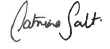 Catriona Salt